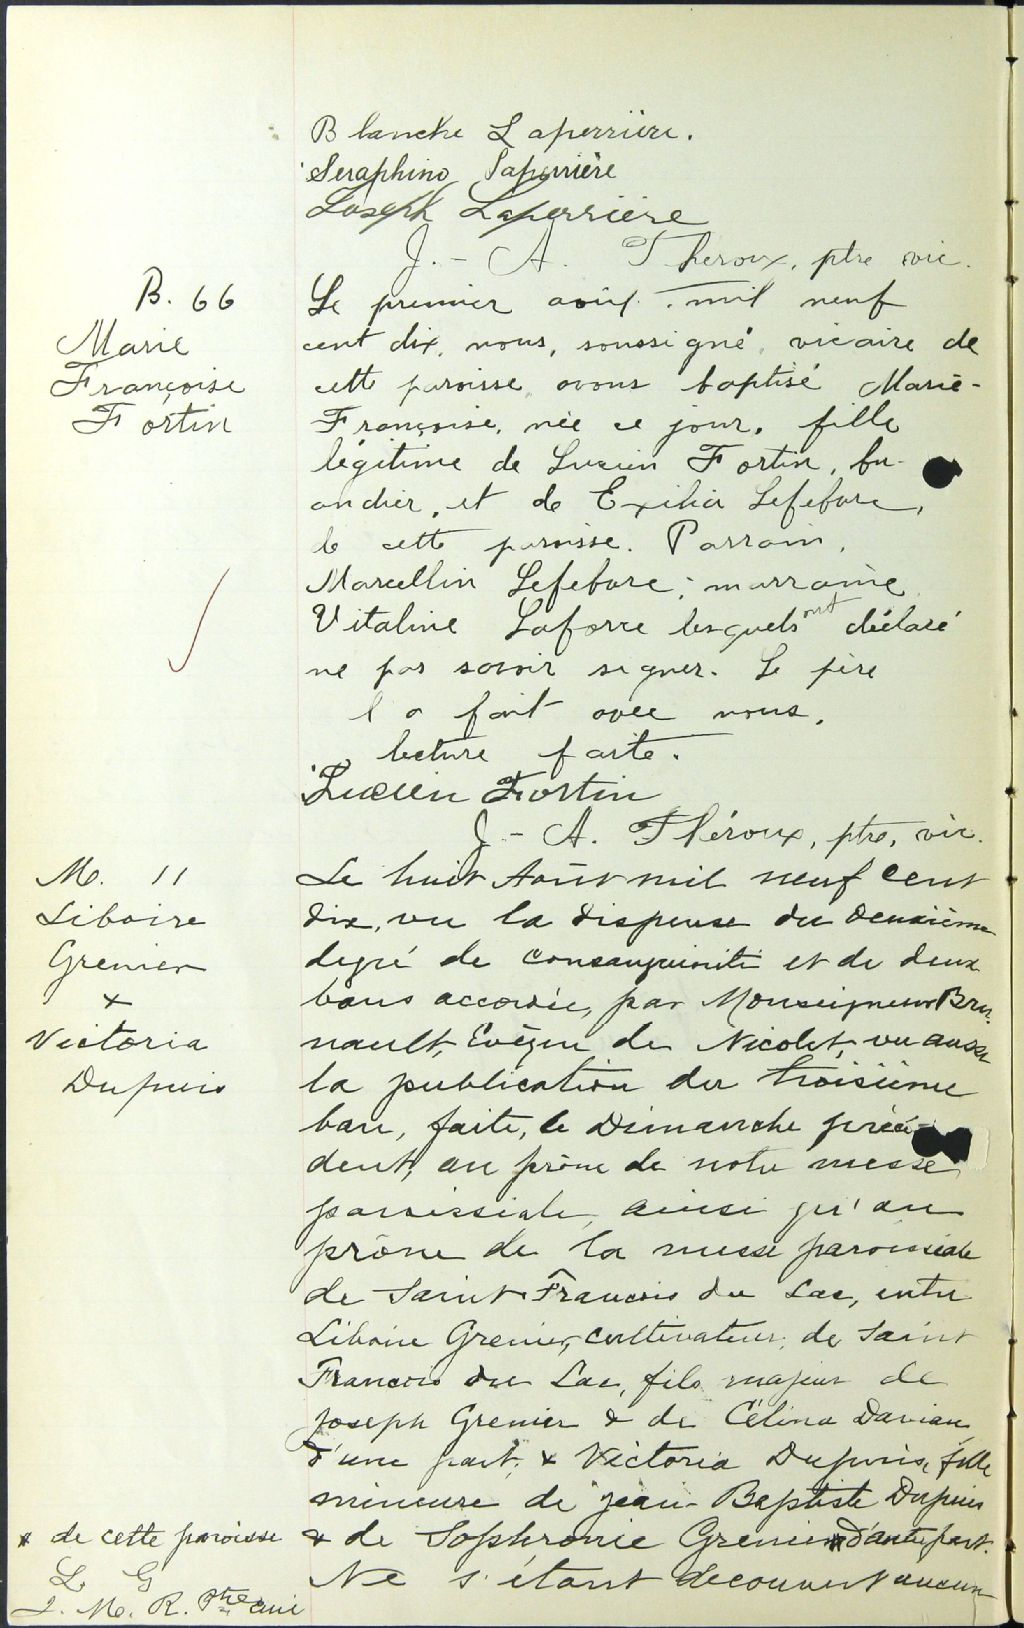 Blanche Laperrière.
Seraphino Laperrière
Joseph Laperrière
J.-A. Théroux, ptre vic.
B. 66
Marie
Françoise
Fortin
Le premier août, mil neuf
cent dix, nous, soussigné, vicaire de
cette paroisse avons baptisé Marie-
Françoise, née ce jour, fille
légitime de Lucien Fortin, bu-
andier, et de Exilia Lefebvre,
de cette paroisse. Parrain,
Marcellin Lefebvre; marraine
Vitaline Laforce lesquels ont déclaré
ne pas savoir signer. Le père
l'a fait avec nous.
lecture faite.
Lucien Fortin
J.-A. Théroux, ptre, vic.
M. 11
Liboire
Grenier
+
Victoria
Dupuis
Le huit Août mil neuf cent
dix, vu la dispense du deuxième
degré de consanguinité et de deux
bans accordée, par Monseigneur Bru-
nault, Evêque de Nicolet, vu aussi
la publication du troisième
ban, faite, le Dimanche précé-
dent, au prône de notre messe
paroissiale, ainsi qu'au
prône de la messe paroissiale
de Saint François du Lac, entre
Liboire Grenier, cultivateur, de Saint
François du Lac, fils majeur de
Joseph Grenier & de Célina Daviau
d'une part, & Victoria Dupuis, fille
mineure de Jean-Baptiste Dupuis
& de Sophronie Grenier * d'autre part.
Ne s'étant découvert aucun
* de cette paroisse
L. G
J. M. R. Ptre curé